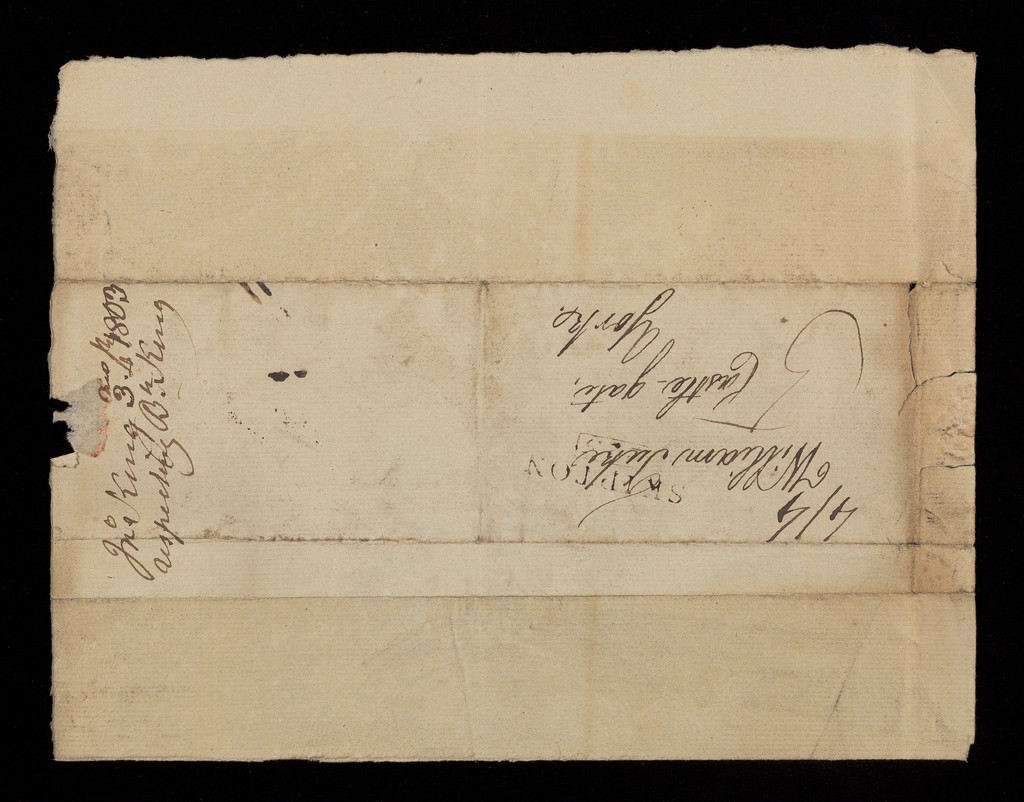 Jnº King 3.4 1803
respecting Bn. King
4/4
William Tuke
Castle gate,
York.
SKIPTON